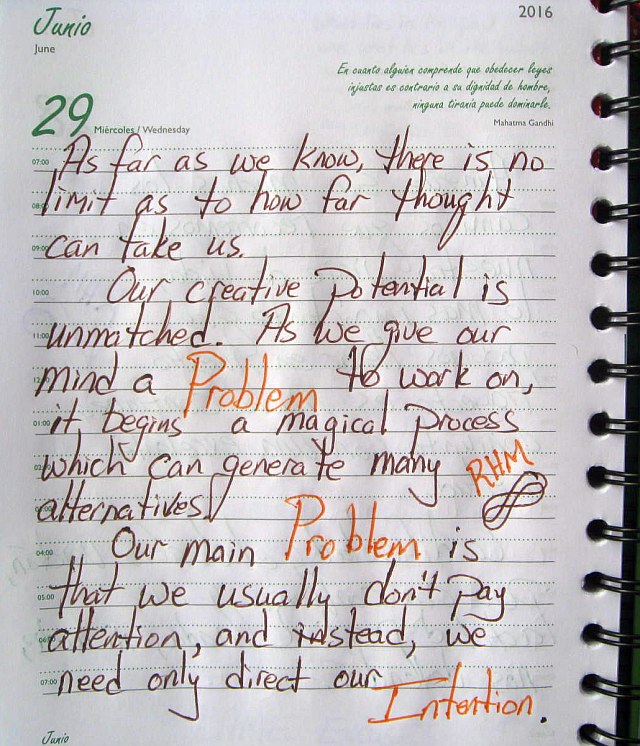 Junio
June
2016
En cuanto alguien comprende que obedecer leyes
injustas es contrario a su dignidad de hombre,
ninguna tiranía puede dominarle.
Mahatma Gandhi
29
Miércoles / Wednesday
07:00 As far as we know, there is no
08:00 limit as to how far thought
09:00 can take us.
10:00 Our creative Potential is
11:00 unmatched. As we give our
mind a Problem to work on,
01:00 it begins a magical process
02:00 which can generate many RHM
alternatives!
04:00 Our main Problem is
05:00 that we usually don't pay
06:00 attention, and instead, we
07:00 need only direct our Intention.
Junio